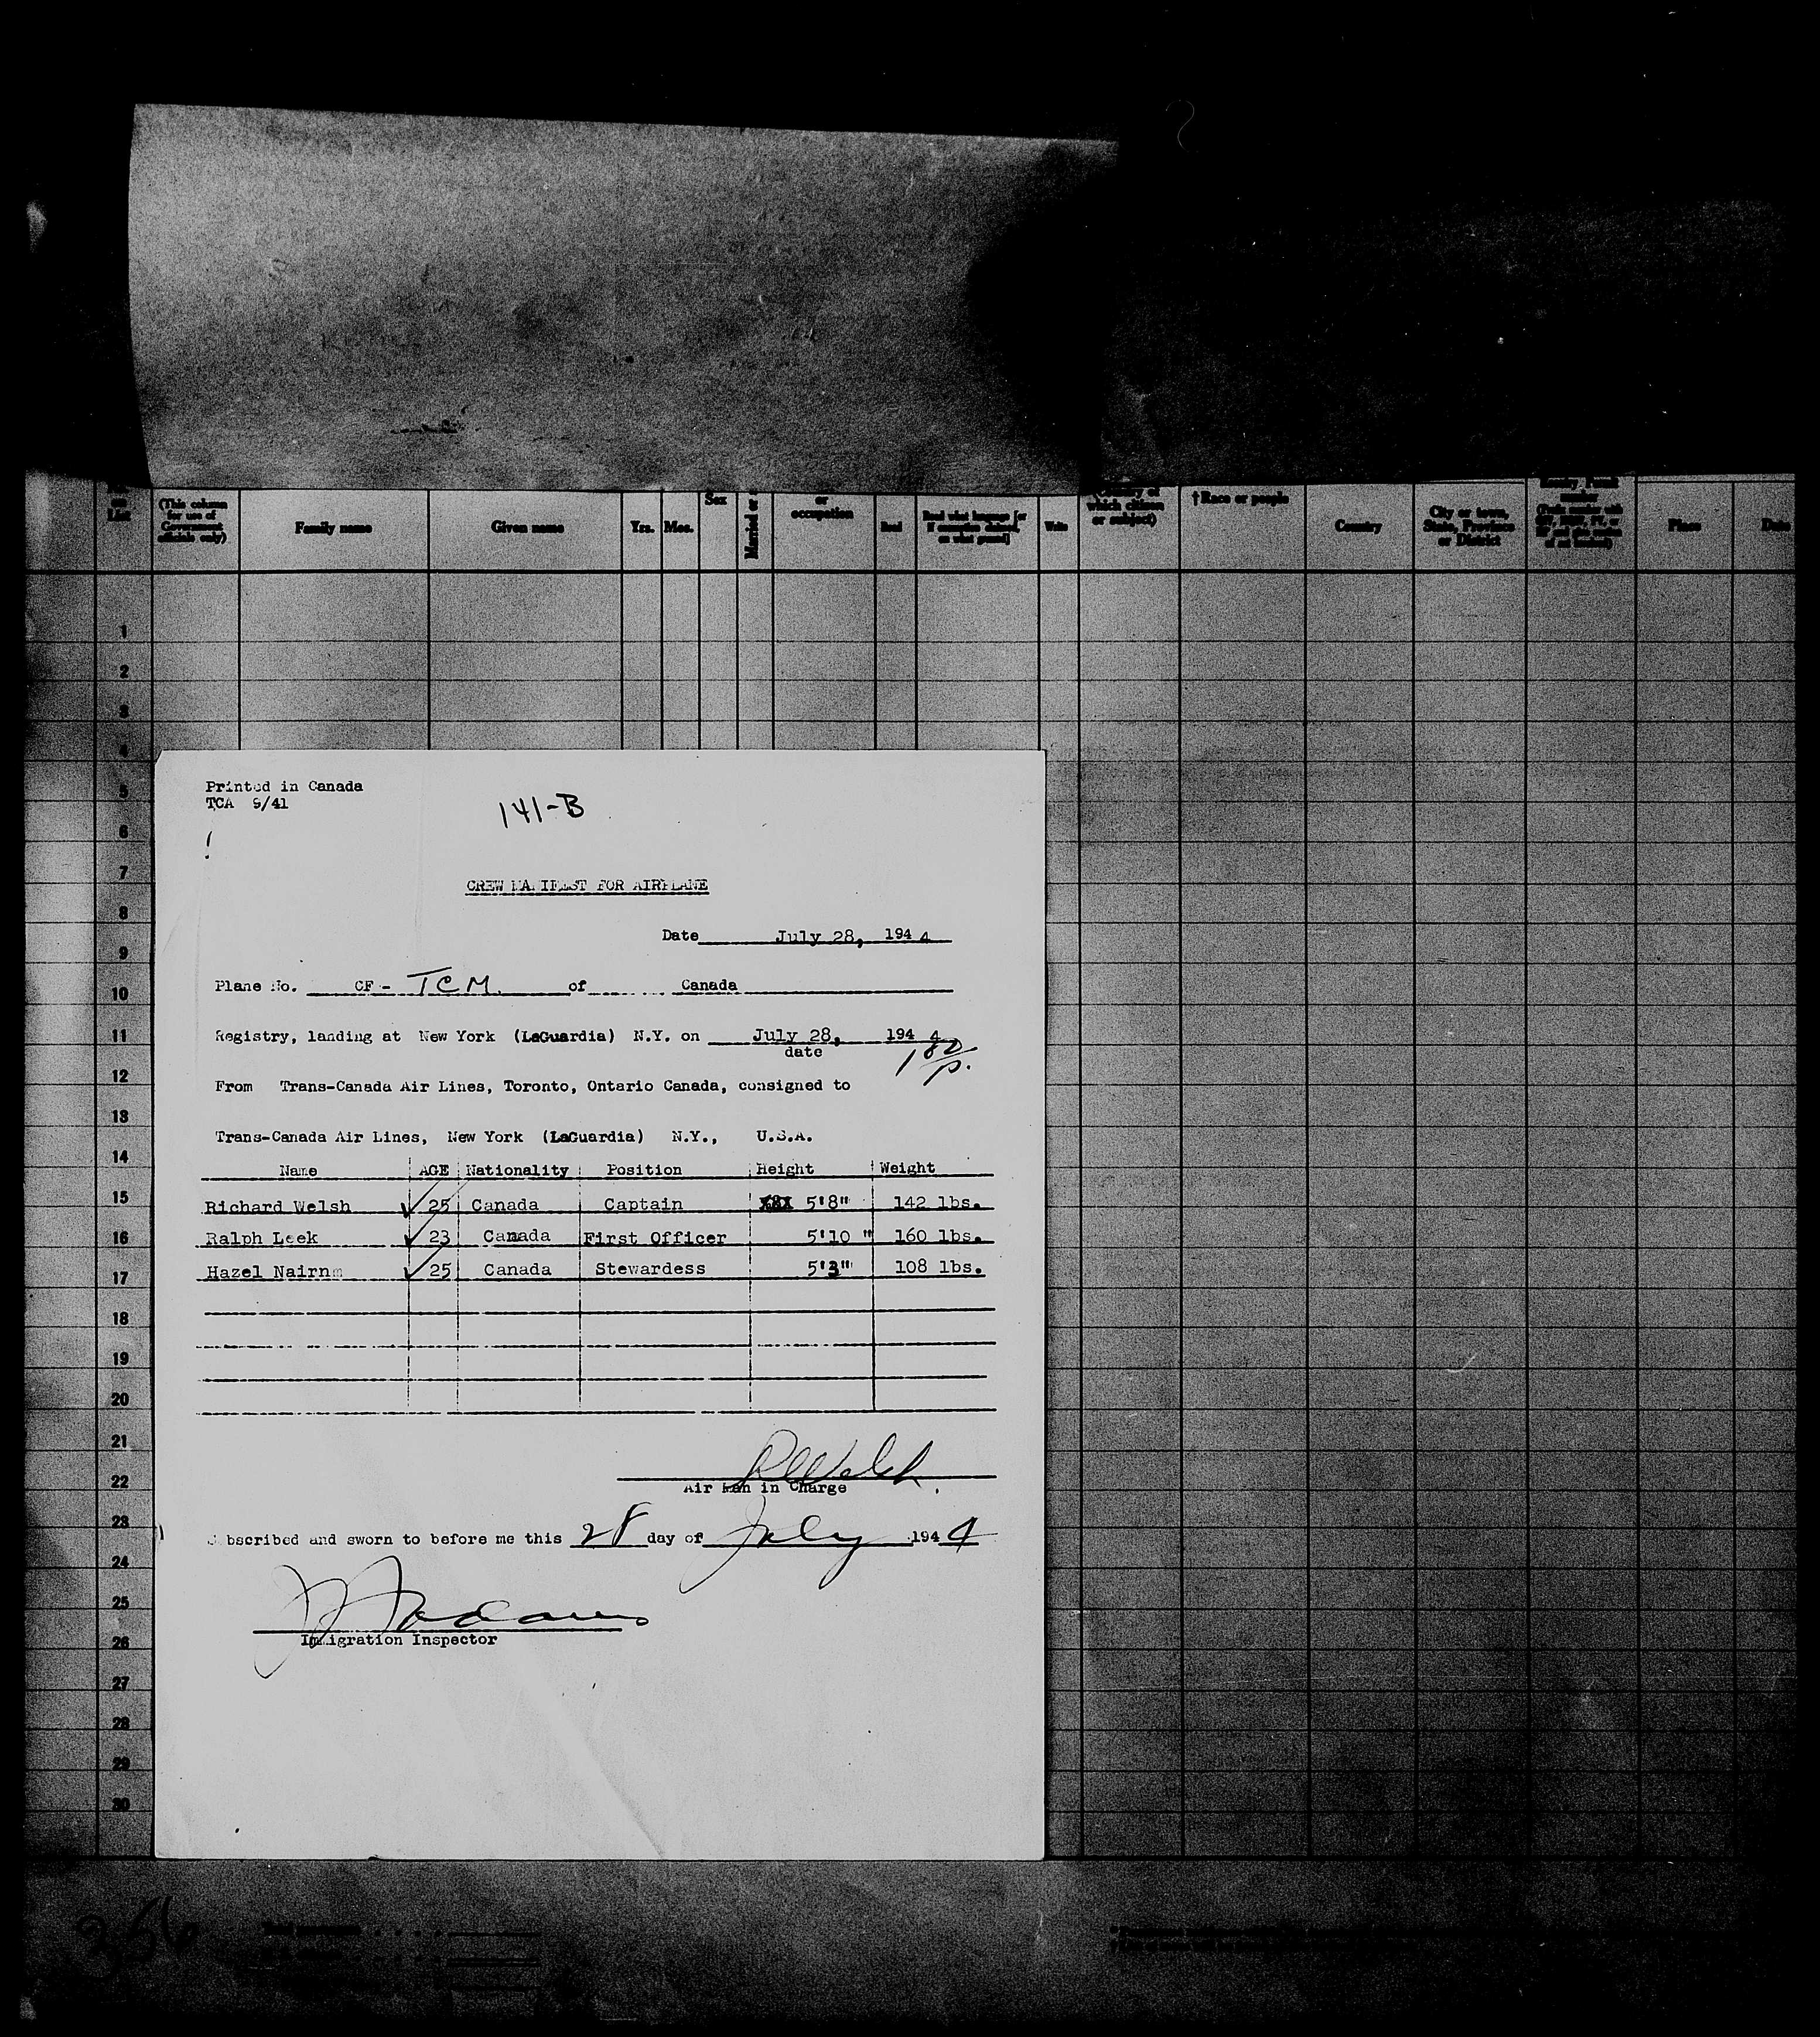 List
(This column for use of Government officials only)
Family name
Given name
Yrs.
Mos.
Sex
Married or
or occupation
Read
Read what language [or if exemption claimed, on what ground]
Write
which citizen or subject)
† Race or people
Country
City or town, State, Province or District
number
Place
Date
1
2
3
4
5
6
7
8
9
10
11
12
13
14
15
16
17
18
19
20
21
22
23
24
25
26
27
28
29
30
Printed in Canada
TCA 9/41
141-B
CREW MANIFEST FOR AIRPLANE
Date July 28, 194 4
Plane No. CF - TCM of Canada
Registry, landing at New York (LaGuardia) N.Y. on July 28, 194 4
date
From Trans-Canada Air Lines, Toronto, Ontario Canada, consigned to
Trans-Canada Air Lines, New York (LaGuardia) N.Y., U.S.A.
Name AGE Nationality Position Height Weight
Richard Welsh 25 Canada Captain 5'8" 142 lbs.
Ralph Leek 23 Canada First Officer 5'10 " 160 lbs.
Hazel Nairn 25 Canada Stewardess 5'3" 108 lbs.
R Welsh
Air Man in Charge
bscribed and sworn to before me this 28 day of July 194 4
Immigration Inspector
356